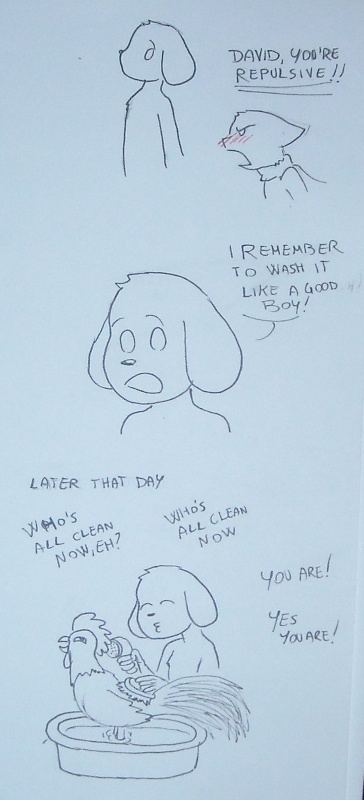 DAVID, YOU'RE
REPULSIVE!!
I REMEMBER
TO WASH IT
LIKE A GOOD
BOY!
LATER THAT DAY
WHO'S
ALL CLEAN
NOW, EH?
WHO'S
ALL CLEAN
NOW
YOU ARE!
YES
YOU ARE!